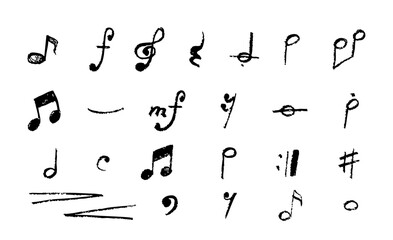 f
mf
c